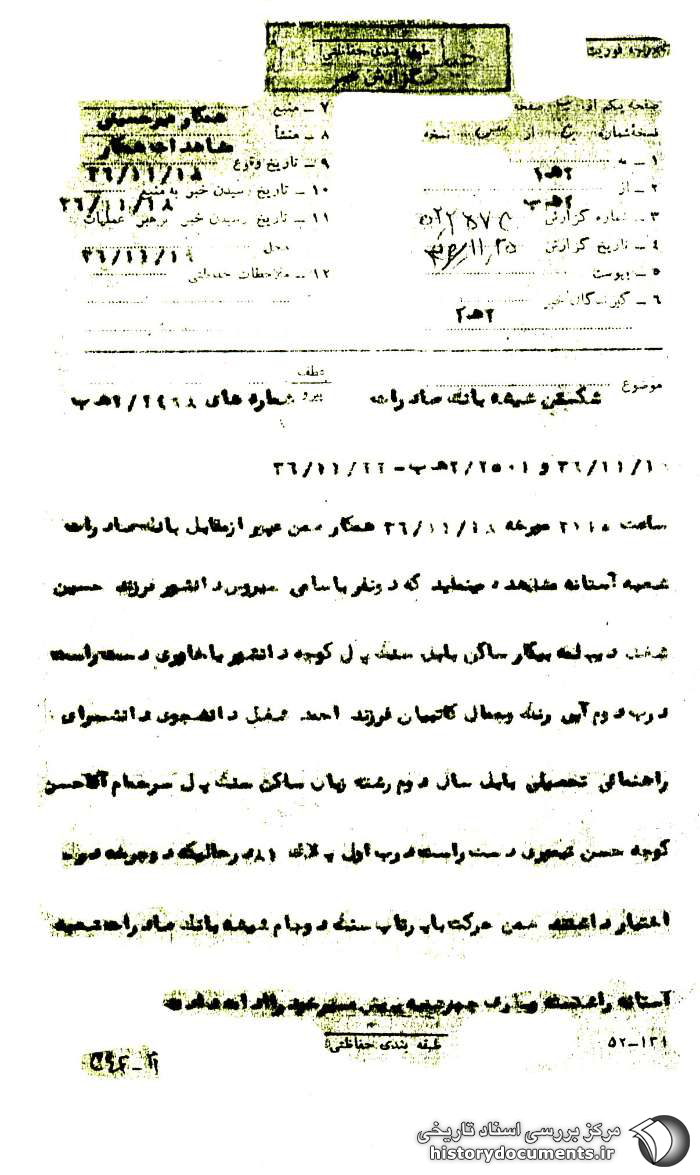 طبقه بندی حفاظتی
گزارش خبر
درجه فوریت
صفحه یکم از صفحه
نسخه شماره از نسخه
۱ ـ به ۲ه‍۱
۲ ـ از ۲ه‍ ب
۳ ـ شماره گزارش
۴ ـ تاریخ گزارش
۵ ـ پیوست
۶ ـ گیرندگان خبر ۲ه‍۲
۷ ـ منبع همکار میرحسینی
۸ ـ منشأ مشاهدات همکار
۹ ـ تاریخ وقوع ۳۶/۱۱/۱۸
۱۰ ـ تاریخ رسیدن خبر به منبع ۳۶/۱۱/۱۸
۱۱ ـ تاریخ رسیدن خبر برهبر عملیات
محل ۳۶/۱۱/۱۹
۱۲ ـ ملاحظات حفاظتی
موضوع شکستن شیشه بانک صادرات
عطف
پیرو شماره های ۲/۲۴۶۸ه‍ ب
۳۶/۱۱/۱۰ و ۲/۲۵۰۱ه‍ ب ـ ۳۶/۱۱/۲۲
ساعت مورخه ۳۶/۱۱/۱۸ همکار ضمن عبور از مقابل بانک صادرات
شعبه آستانه مشاهده مینماید که دونفر باسامی سیروس دانشور فرزند حسین
شغل دیپلمه بیکار ساکن بابل سنگ پل کوچه دانشور یا خاوری دست راست
درب دوم آبی رنگ وجمال کاتبیان فرزند احمد شغل دانشجوی دانشسرای
راهنمائی تحصیلی بابل سال دوم رشته زبان ساکن سنگ پل سرحمام آقاحسن
کوچه حسن تیموری دست راست درب اول پلاک ۸۱ درحالیکه دوچرخه دراختیار
داشتند ضمن حرکت باپرتاب سنگ دوجام شیشه بانک صادرات شعبه
آستانه راشکسته وبدون مسیرخود راادامه دادند
طبقه بندی حفاظتی
۵۲–۱۳۱
مرکز بررسی اسناد تاریخی
historydocuments.ir